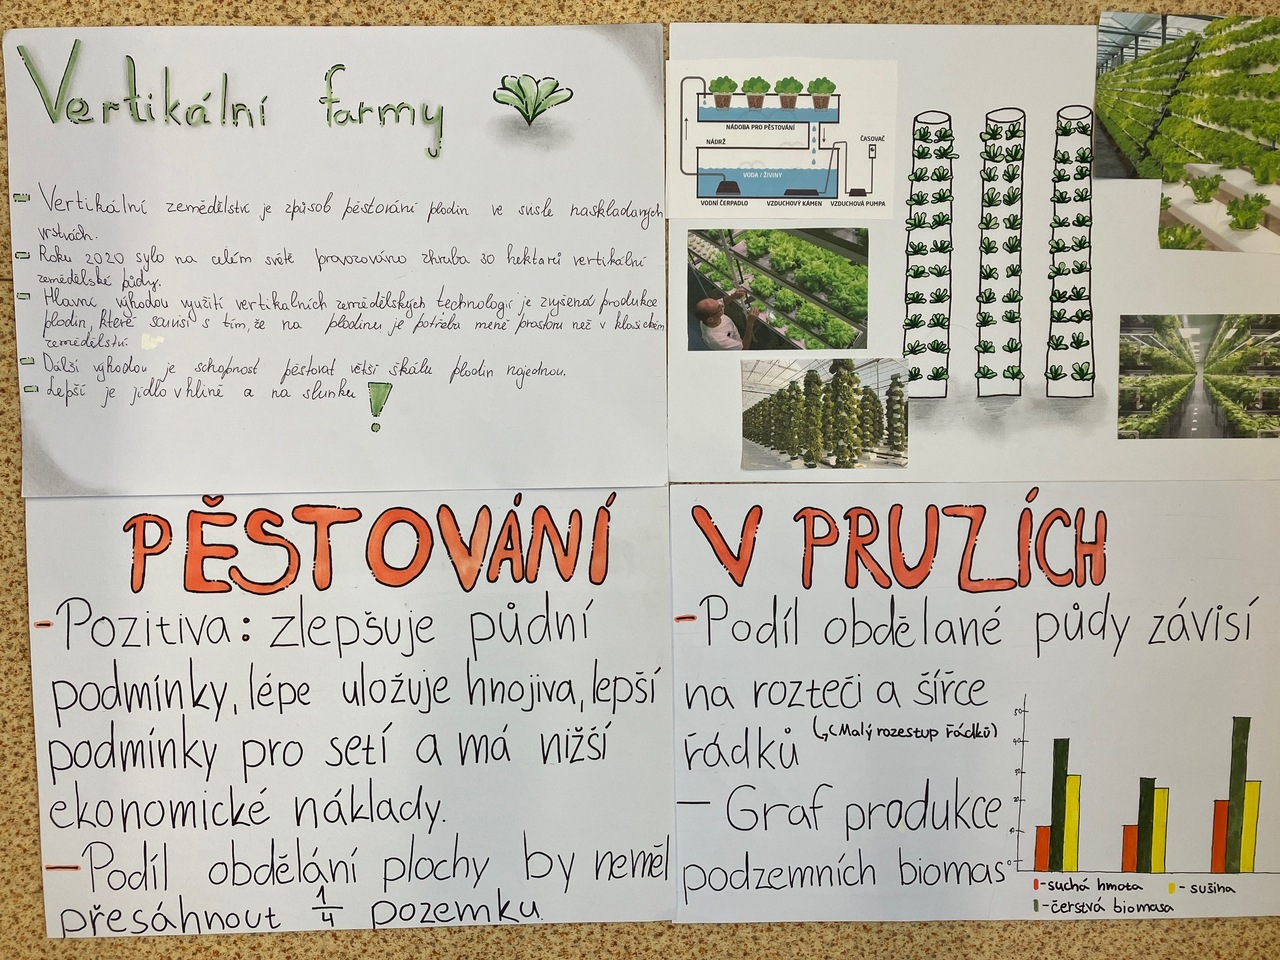 Vertikální farmy
- Vertikální zemědělství je způsob pěstování plodin ve svisle naskládaných
vrstvách.
- Roku 2020 bylo na celém světě provozováno zhruba 30 hektarů vertikální
zemědělské půdy.
- Hlavní výhodou využití vertikálních zemědělských technologií je zvýšená produkce
plodin, která souvisí s tím, že na plodinu je potřeba méně prostoru než v klasickém
zemědělství.
- Další výhodou je schopnost pěstovat větší škálu plodin najednou.
- Lepší je jídlo v hlíně a na slunku!
NÁDOBA PRO PĚSTOVÁNÍ
ČASOVAČ
NÁDRŽ
VODA / ŽIVINY
VODNÍ ČERPADLO VZDUCHOVÝ KÁMEN VZDUCHOVÁ PUMPA
PĚSTOVÁNÍ V PRUZÍCH
- Pozitiva: zlepšuje půdní
podmínky, lépe uložuje hnojiva, lepší
podmínky pro setí a má nižší
ekonomické náklady.
- Podíl obdělání plochy by neměl
přesáhnout 1/4 pozemku.
- Podíl obdělané půdy závisí
na rozteči a šířce
řádků
(Malý rozestup řádků)
- Graf produkce
podzemních biomas
50
40
30
20
10
0
- suchá hmota
- sušina
- čerstvá biomasa